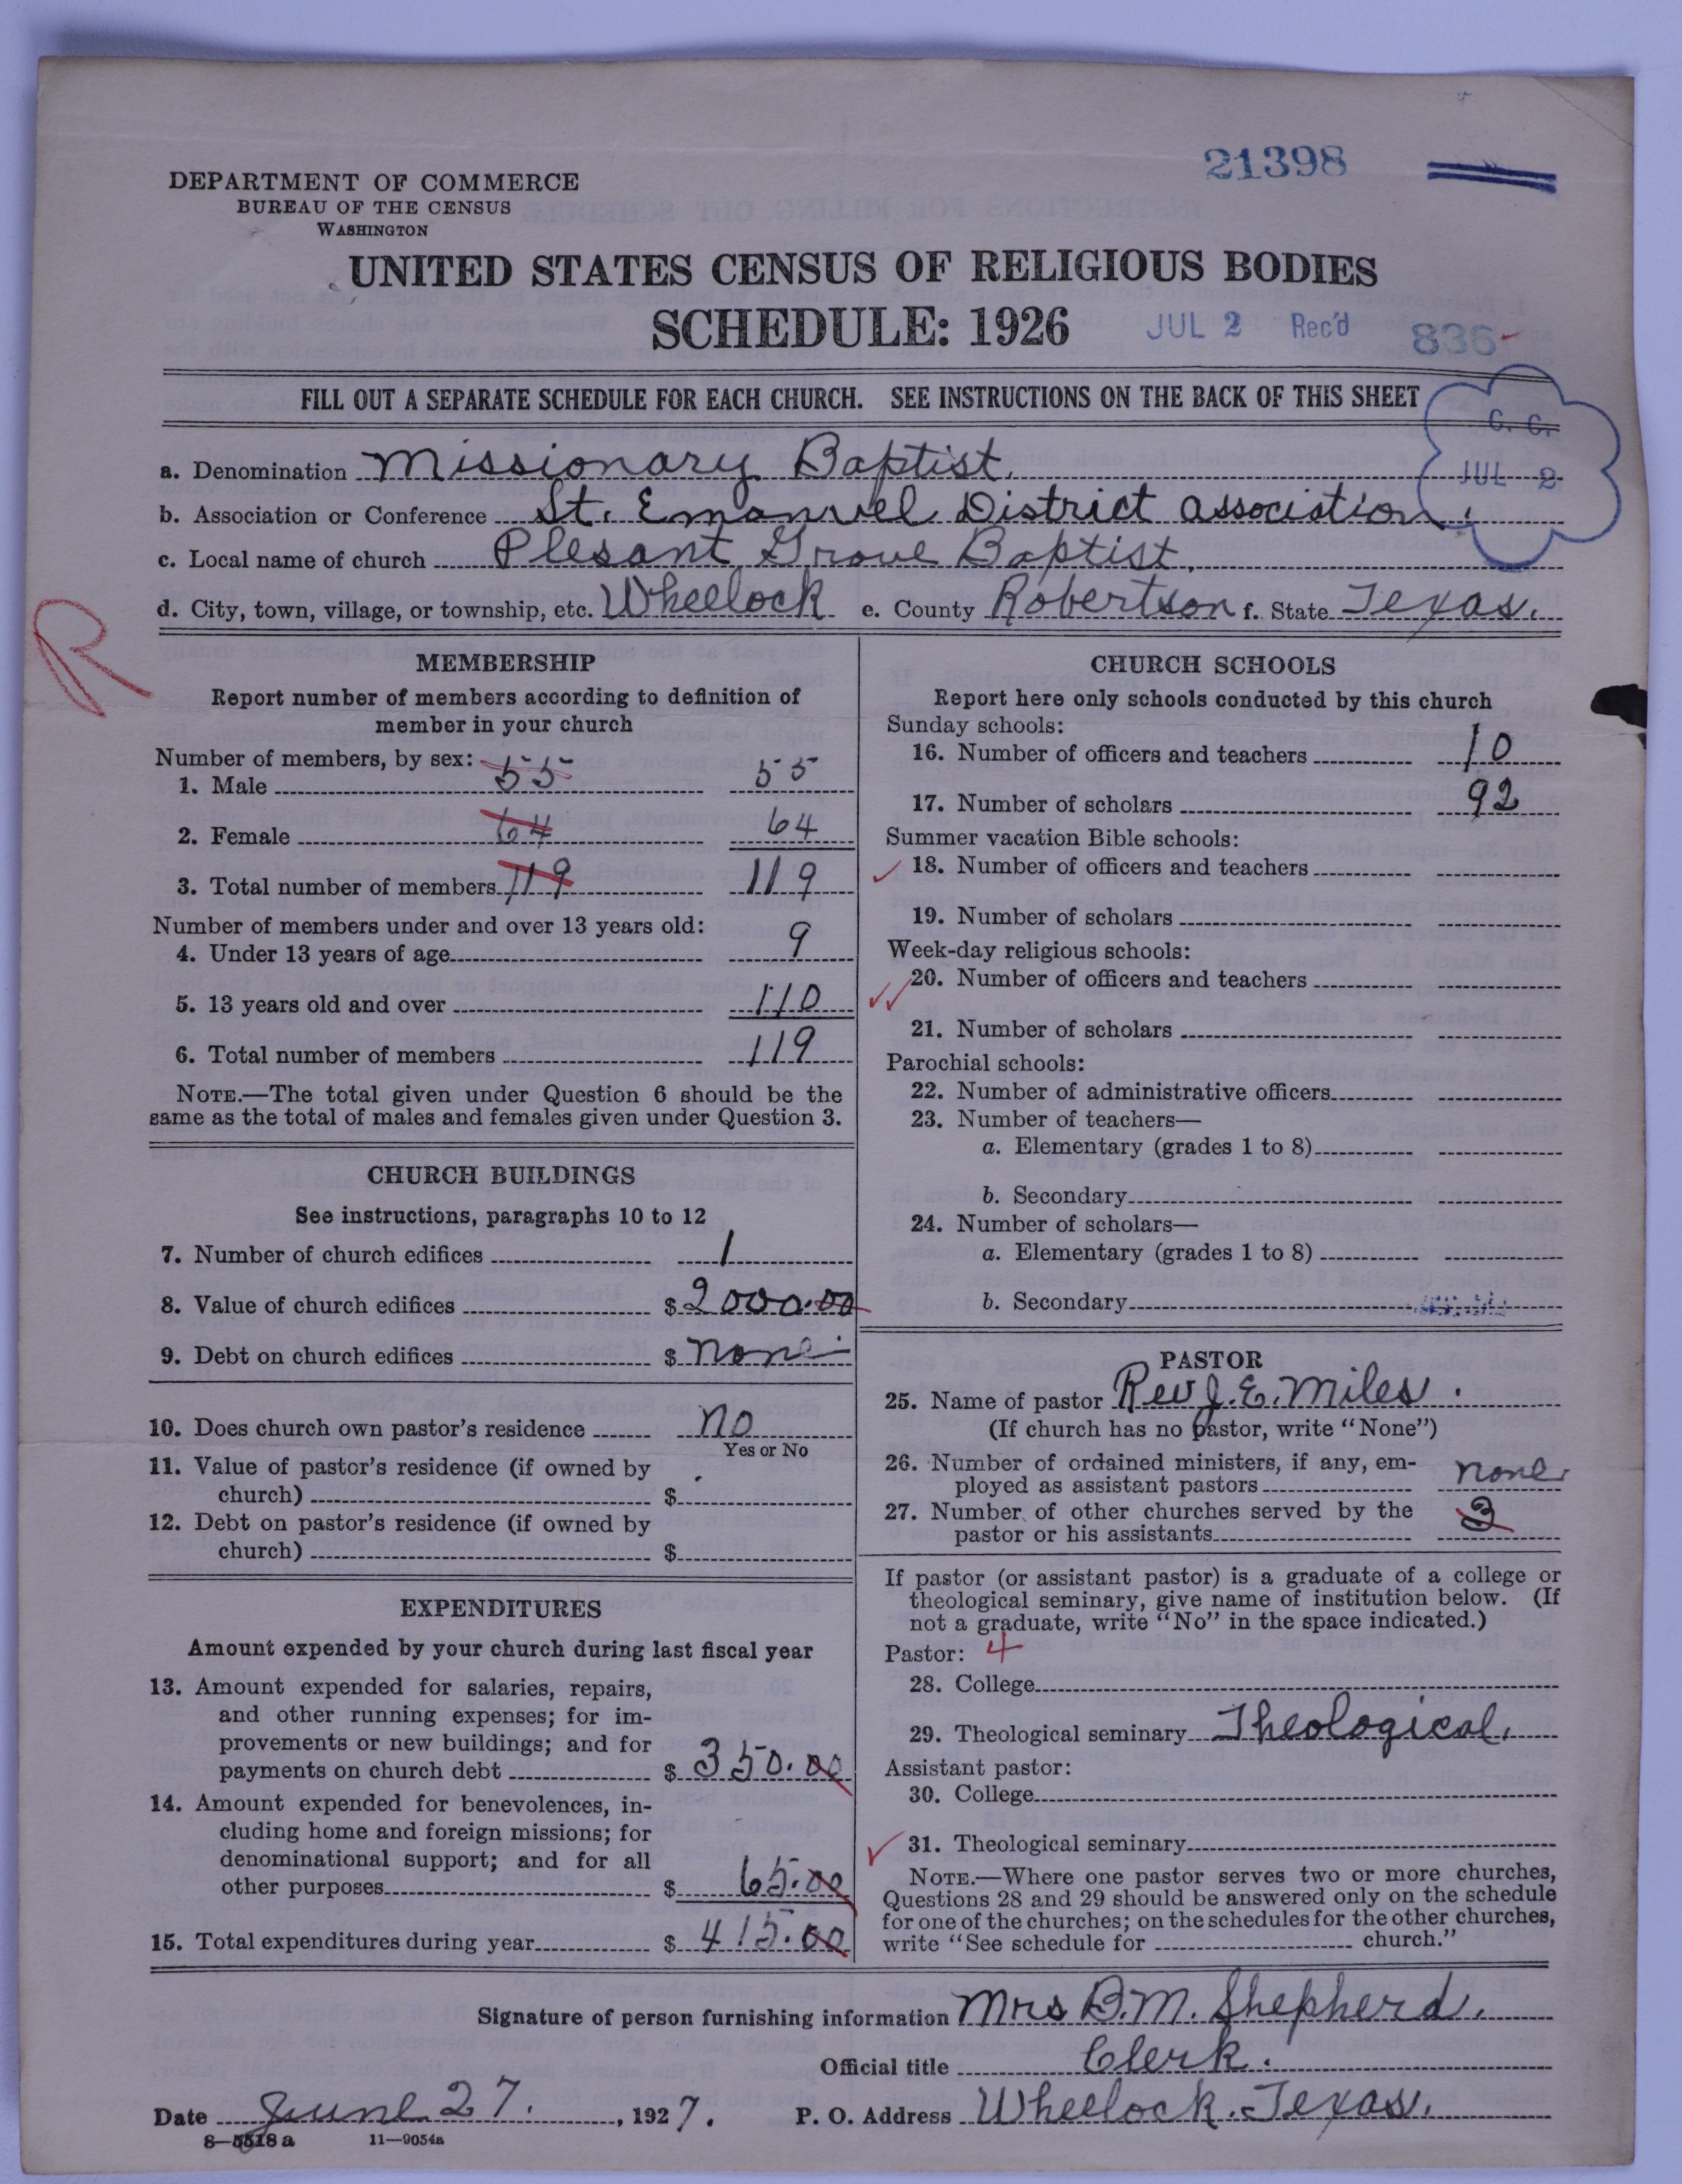 21398
DEPARTMENT OF COMMERCE
BUREAU OF THE CENSUS
WASHINGTON
UNITED STATES CENSUS OF RELIGIOUS BODIES
SCHEDULE: 1926
JUL 2 Rec'd 836
FILL OUT A SEPARATE SCHEDULE FOR EACH CHURCH. SEE INSTRUCTIONS ON THE BACK OF THIS SHEET
C. C.
JUL 2
a. Denomination Missionary Baptist.
b. Association or Conference St. Emanuel District Association.
c. Local name of church Plesant Grove Baptist.
d. City, town, village, or township, etc. Wheelock e. County Robertson f. State Texas.
R
MEMBERSHIP
Report number of members according to definition of
member in your church
Number of members, by sex:
1. Male 55 55
2. Female 64 64
3. Total number of members 119 119
Number of members under and over 13 years old:
4. Under 13 years of age 9
5. 13 years old and over 110
6. Total number of members 119
NOTE.—The total given under Question 6 should be the
same as the total of males and females given under Question 3.
CHURCH BUILDINGS
See instructions, paragraphs 10 to 12
7. Number of church edifices 1
8. Value of church edifices $ 2000.00
9. Debt on church edifices $ none
10. Does church own pastor's residence no
Yes or No
11. Value of pastor's residence (if owned by
church) $
12. Debt on pastor's residence (if owned by
church) $
EXPENDITURES
Amount expended by your church during last fiscal year
13. Amount expended for salaries, repairs,
and other running expenses; for im-
provements or new buildings; and for
payments on church debt $ 350.00
14. Amount expended for benevolences, in-
cluding home and foreign missions; for
denominational support; and for all
other purposes $ 65.00
15. Total expenditures during year $ 415.00
CHURCH SCHOOLS
Report here only schools conducted by this church
Sunday schools:
16. Number of officers and teachers 10
17. Number of scholars 92
Summer vacation Bible schools:
18. Number of officers and teachers
19. Number of scholars
Week-day religious schools:
20. Number of officers and teachers
21. Number of scholars
Parochial schools:
22. Number of administrative officers
23. Number of teachers—
a. Elementary (grades 1 to 8)
b. Secondary
24. Number of scholars—
a. Elementary (grades 1 to 8)
b. Secondary
PASTOR
25. Name of pastor Rev J. E. Miles.
(If church has no pastor, write "None")
26. Number of ordained ministers, if any, em-
ployed as assistant pastors none
27. Number of other churches served by the
pastor or his assistants 3
If pastor (or assistant pastor) is a graduate of a college or
theological seminary, give name of institution below. (If
not a graduate, write "No" in the space indicated.)
Pastor: 4
28. College
29. Theological seminary Theological.
Assistant pastor:
30. College
31. Theological seminary
NOTE.—Where one pastor serves two or more churches,
Questions 28 and 29 should be answered only on the schedule
for one of the churches; on the schedules for the other churches,
write "See schedule for church."
Signature of person furnishing information Mrs B.M. Shepherd.
Official title Clerk.
Date June 27. , 1927. P. O. Address Wheelock. Texas.
8—5518 a 11—9054a